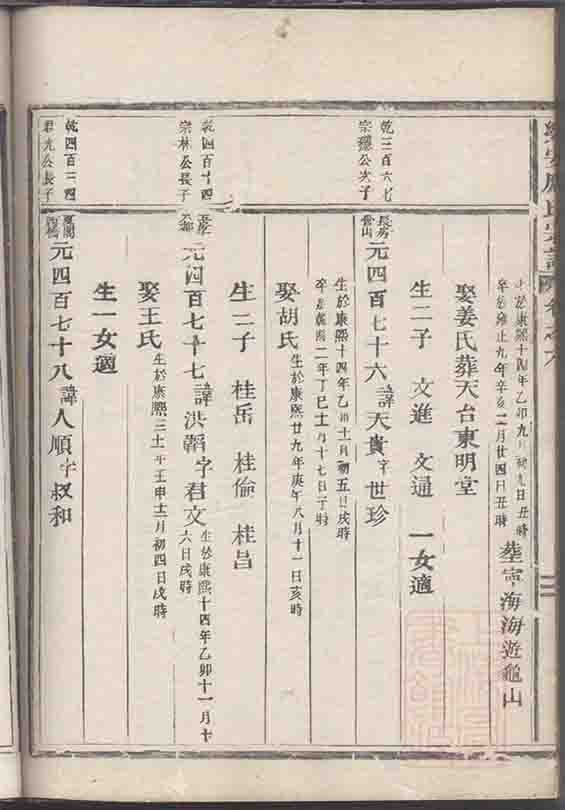 氏宗譜 卷之六
生於康熙十四年乙卯九月初九日丑時
卒於雍正九年辛亥二月廿四日丑時
葬寧海海遊龜山
娶姜氏葬天台東明堂
生二子 文進 文通 一女適
乾三百六七
宗穩公次子
長房
元四百七十六諱天貴字世珍
生於康熙十四年乙卯十一月初五日戌時
卒於乾隆二年丁巳十一月十七日子時
娶胡氏生於康熙廿九年庚午八月十一日亥時
生二子 桂岳 桂倫 桂昌
乾四百十四
宗林公長子
元四百七十七諱洪韜字君文
生於康熙十四年乙卯十一月十
六日戌時
娶王氏生於康熙三十一年壬申十二月初四日戌時
生一女適
乾四百三四
君光公長子
元四百七十八諱人順字叔和